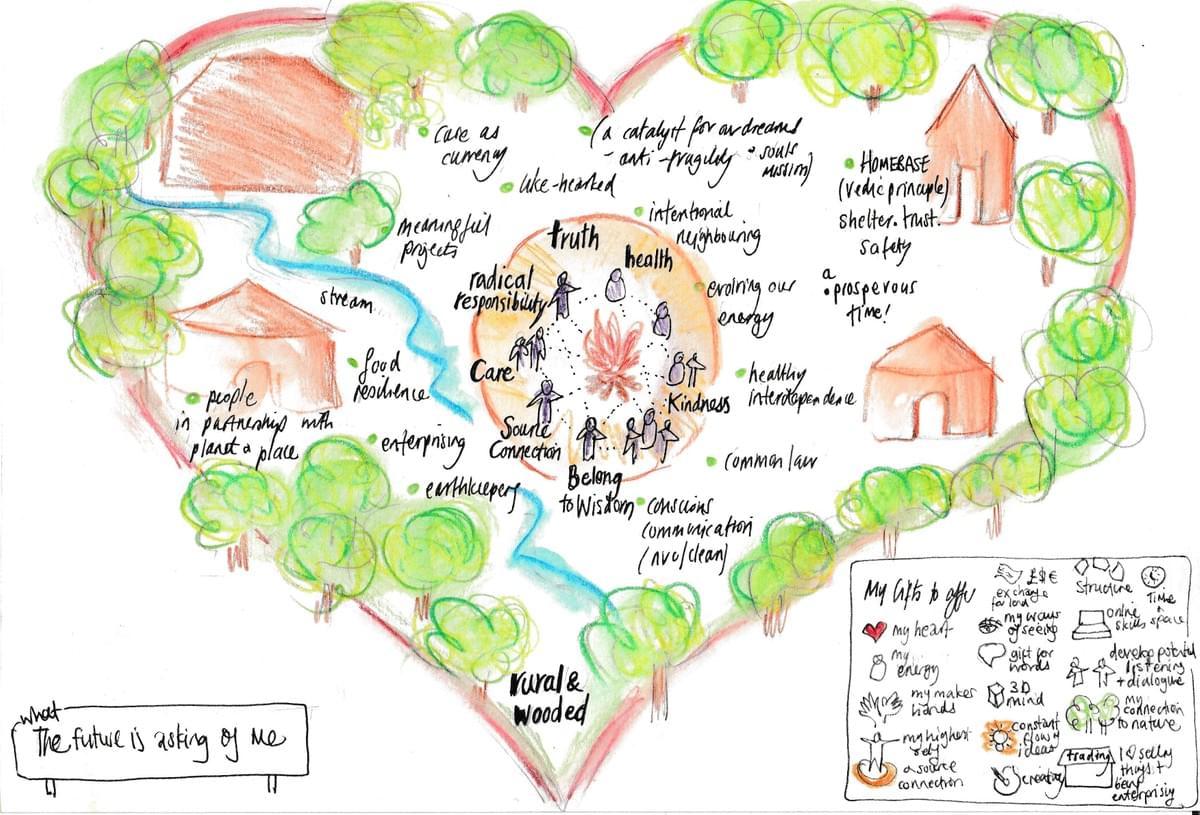 care as
currency
(a catalyst for our dreams
- anti-fragility & souls
mission)
like-hearted
meaningful
projects
intentional
neighbouring
HOMEBASE
(vedic principle)
shelter. trust.
safety
a
prosperous
time!
truth
health
radical
responsibility
evolving our
energy
stream
Care
Kindness
healthy
interdependence
food
resilience
people
in partnership with
planet & place
enterprising
Source
Connection
common law
earthkeepers
Belong
to Wisdom
conscious
communication
(nvc/clean)
rural &
wooded
what
The future is asking of me
My Gifts to offer
my heart
my
energy
my makers
hands
my highest
self
& source
connection
£$€
exchange
for land
my ways
of seeing
gift for
words
3D
mind
constant
flow of
ideas
creative
Structure
Time
&
space
online
skills
develop potential
listening
+ dialogue
my
connection
to nature
trading
I ♡ selling
things +
being
enterprising